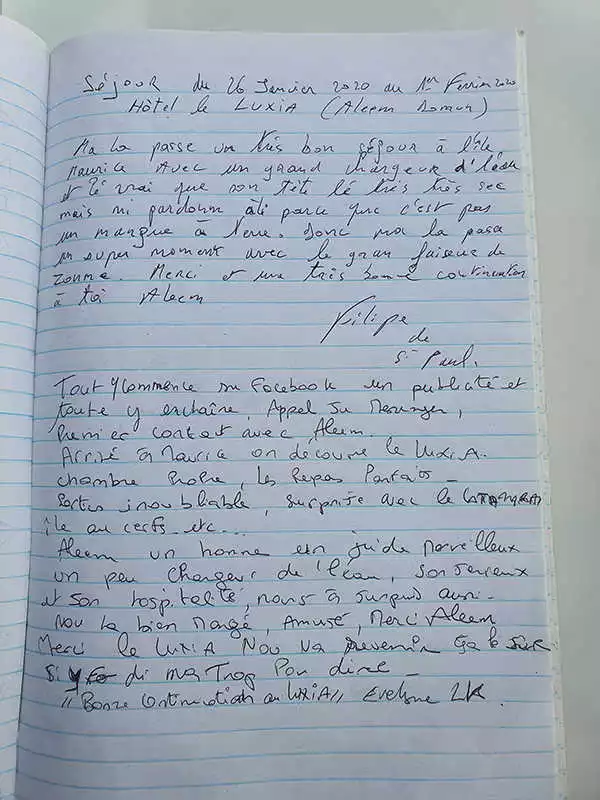 Séjour du 26 Janvier 2020 au 1er Fevrier 2020
Hôtel le LUXIA (Aleem
Ma la passe un très bon séjour à l'île
Maurice Avec un grand chargeur d'léau
et lé vrai que son tété lé très très sec
mais mi pardonn àli parce que c'est pas
un mangue à terre. Donc ma la passe
un super moment avec le gran faiseur de
zourne. Merci et une très bonne continuation
à toi Aleem
Filipe
de
St Paul.
Tout y commence su Facebook un publicité et
toute y enchaîne, Appel su Messenger,
Premier contact avec Aleem.
Arrivé à Maurice on découvre le LuXiA.
Chambre Propre, les Repas Parfait _
Sorties inoubliable, surprise avec le
île au cerfs etc...
Aleem un homme un guide merveilleux
un peu chargeur de l'éau, son serieux
et son hospitalité, nous a surpris aussi.
Nou la bien Mangé, Amusé, Merci Aleem
Merci le LUXIA Nou va revenir Ça le sûr
Si di ma Trop Pou dire _
"Bonne Continuation au LUXIA" Evelyne LK.